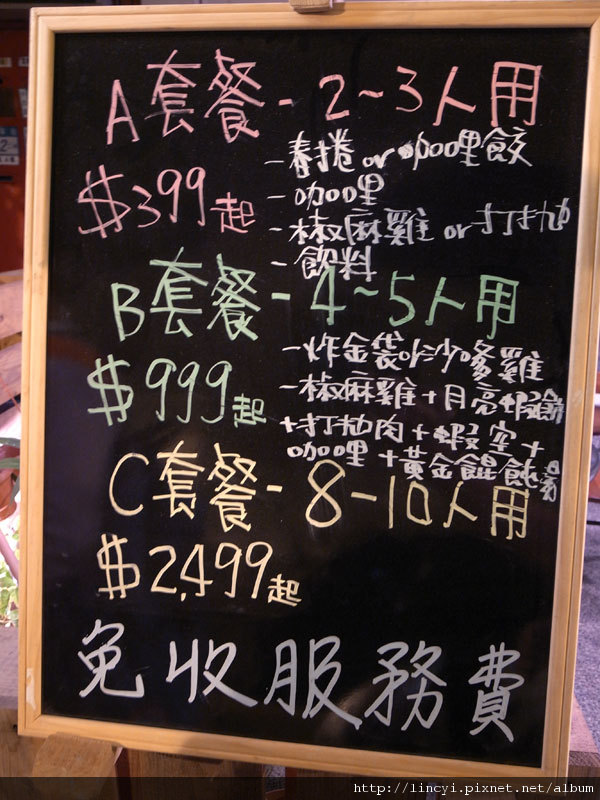 A套餐 - 2~3人用
$399起
- 春捲 or 咖哩餃
- 咖哩
- 椒麻雞 or 打拋
- 飲料
B套餐 - 4~5人用
$999起
- 炸金袋 or 沙嗲雞
- 椒麻雞 + 月亮蝦餅
+ 打拋肉 + 蝦空 +
咖哩 + 黃金餛飩湯
C套餐 - 8-10人用
$2,499起
免收服務費
http://lincyi.pixnet.net/album